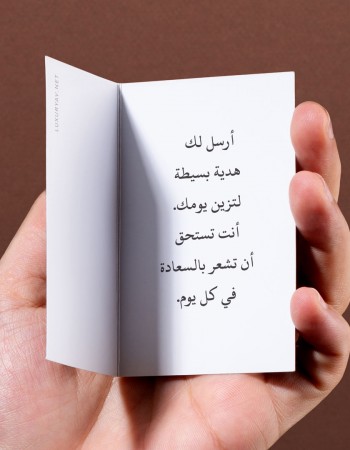 أرسل لك
هدية بسيطة
لتزين يومك.
أنت تستحق
أن تشعر بالسعادة
في كل يوم.